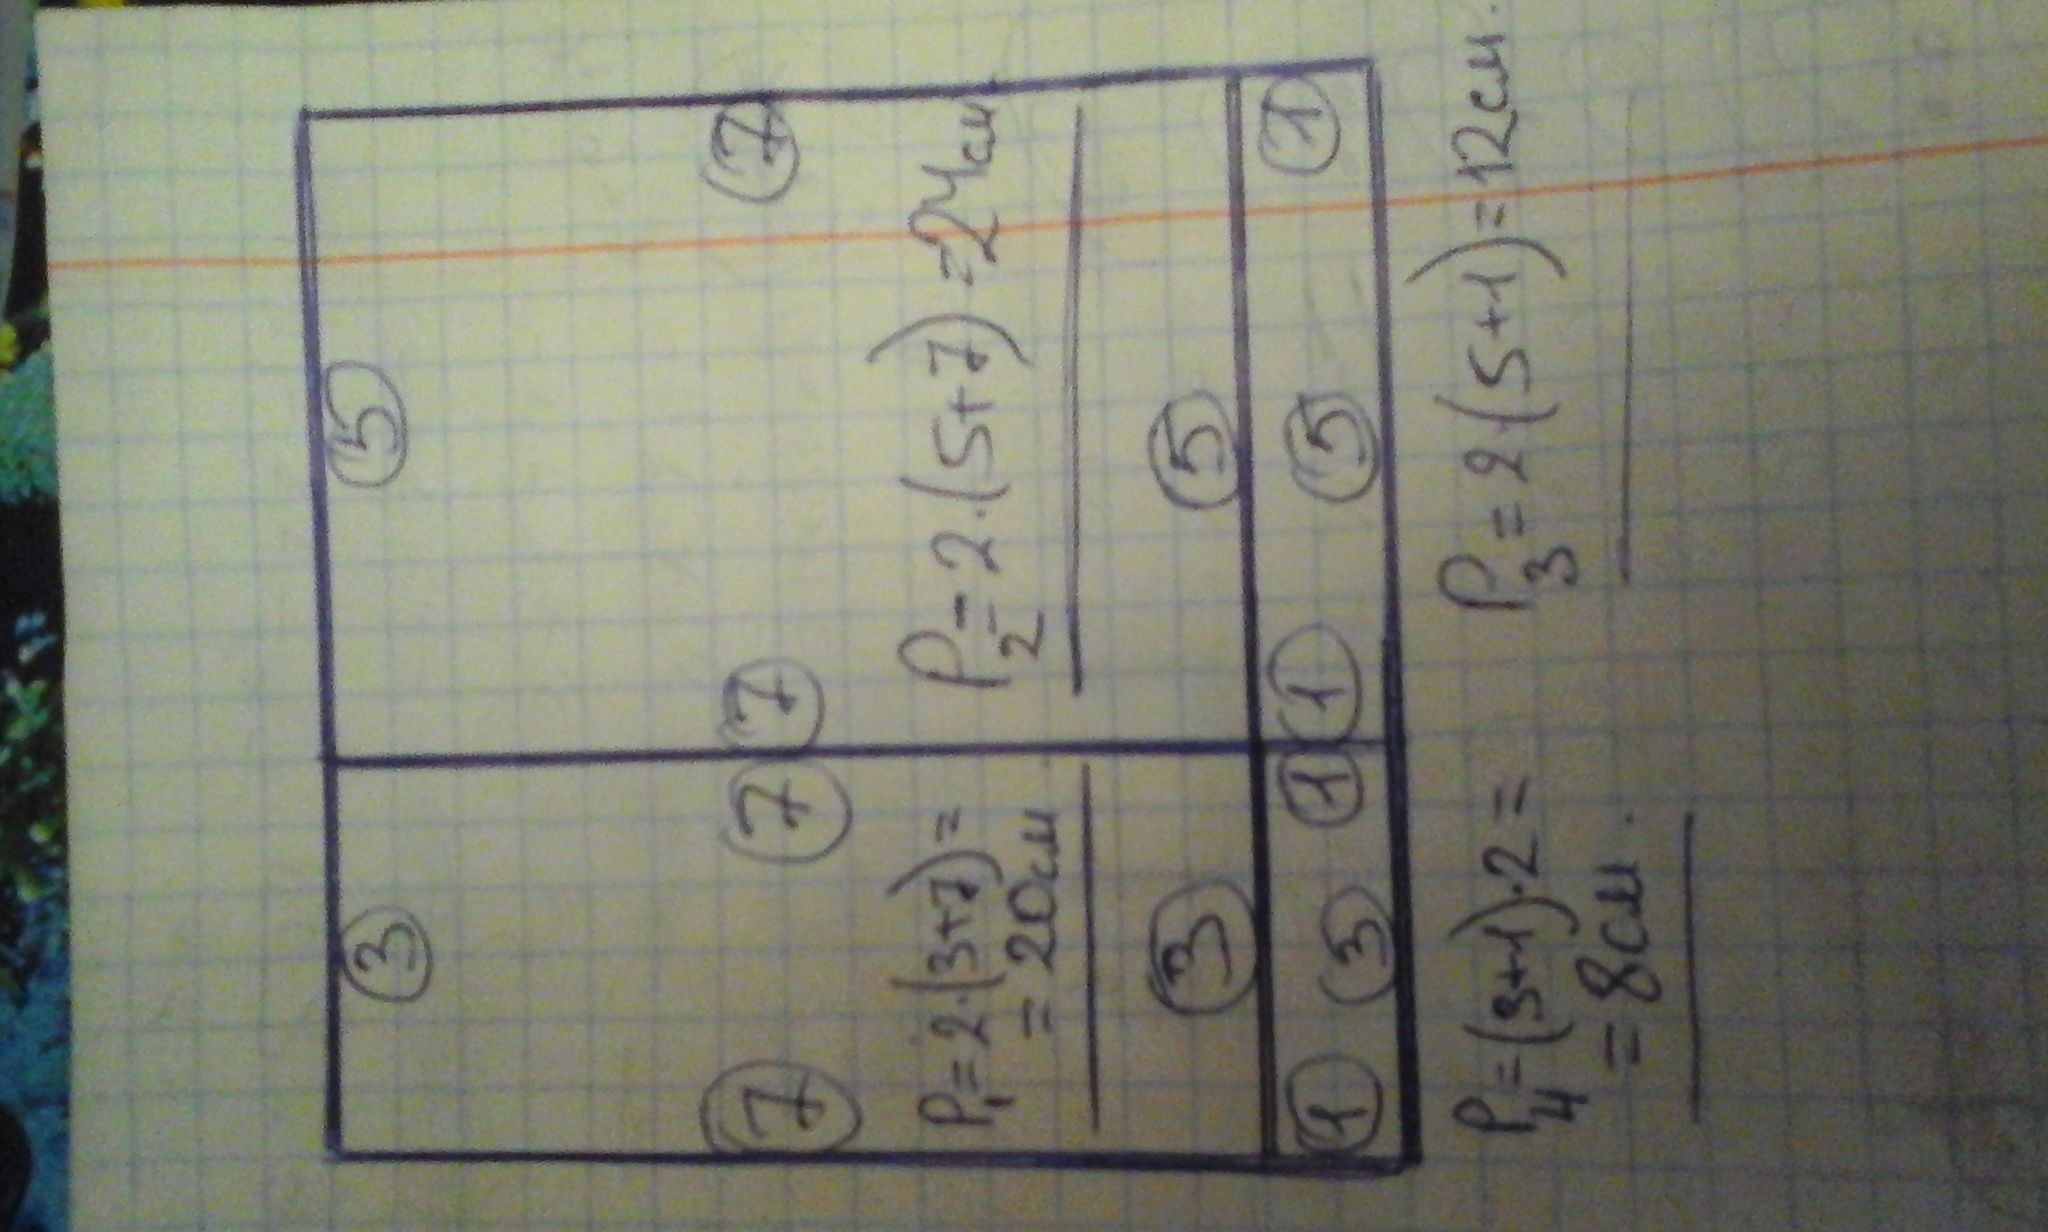 3 5
7 7 7 7
P₁=2·(3+7)=
=20см
P₂=2·(5+7)=24см
3 5
1 3 1 1 5 1
P₄=(3+1)·2=
=8см.
P₃=2·(5+1)=12см.